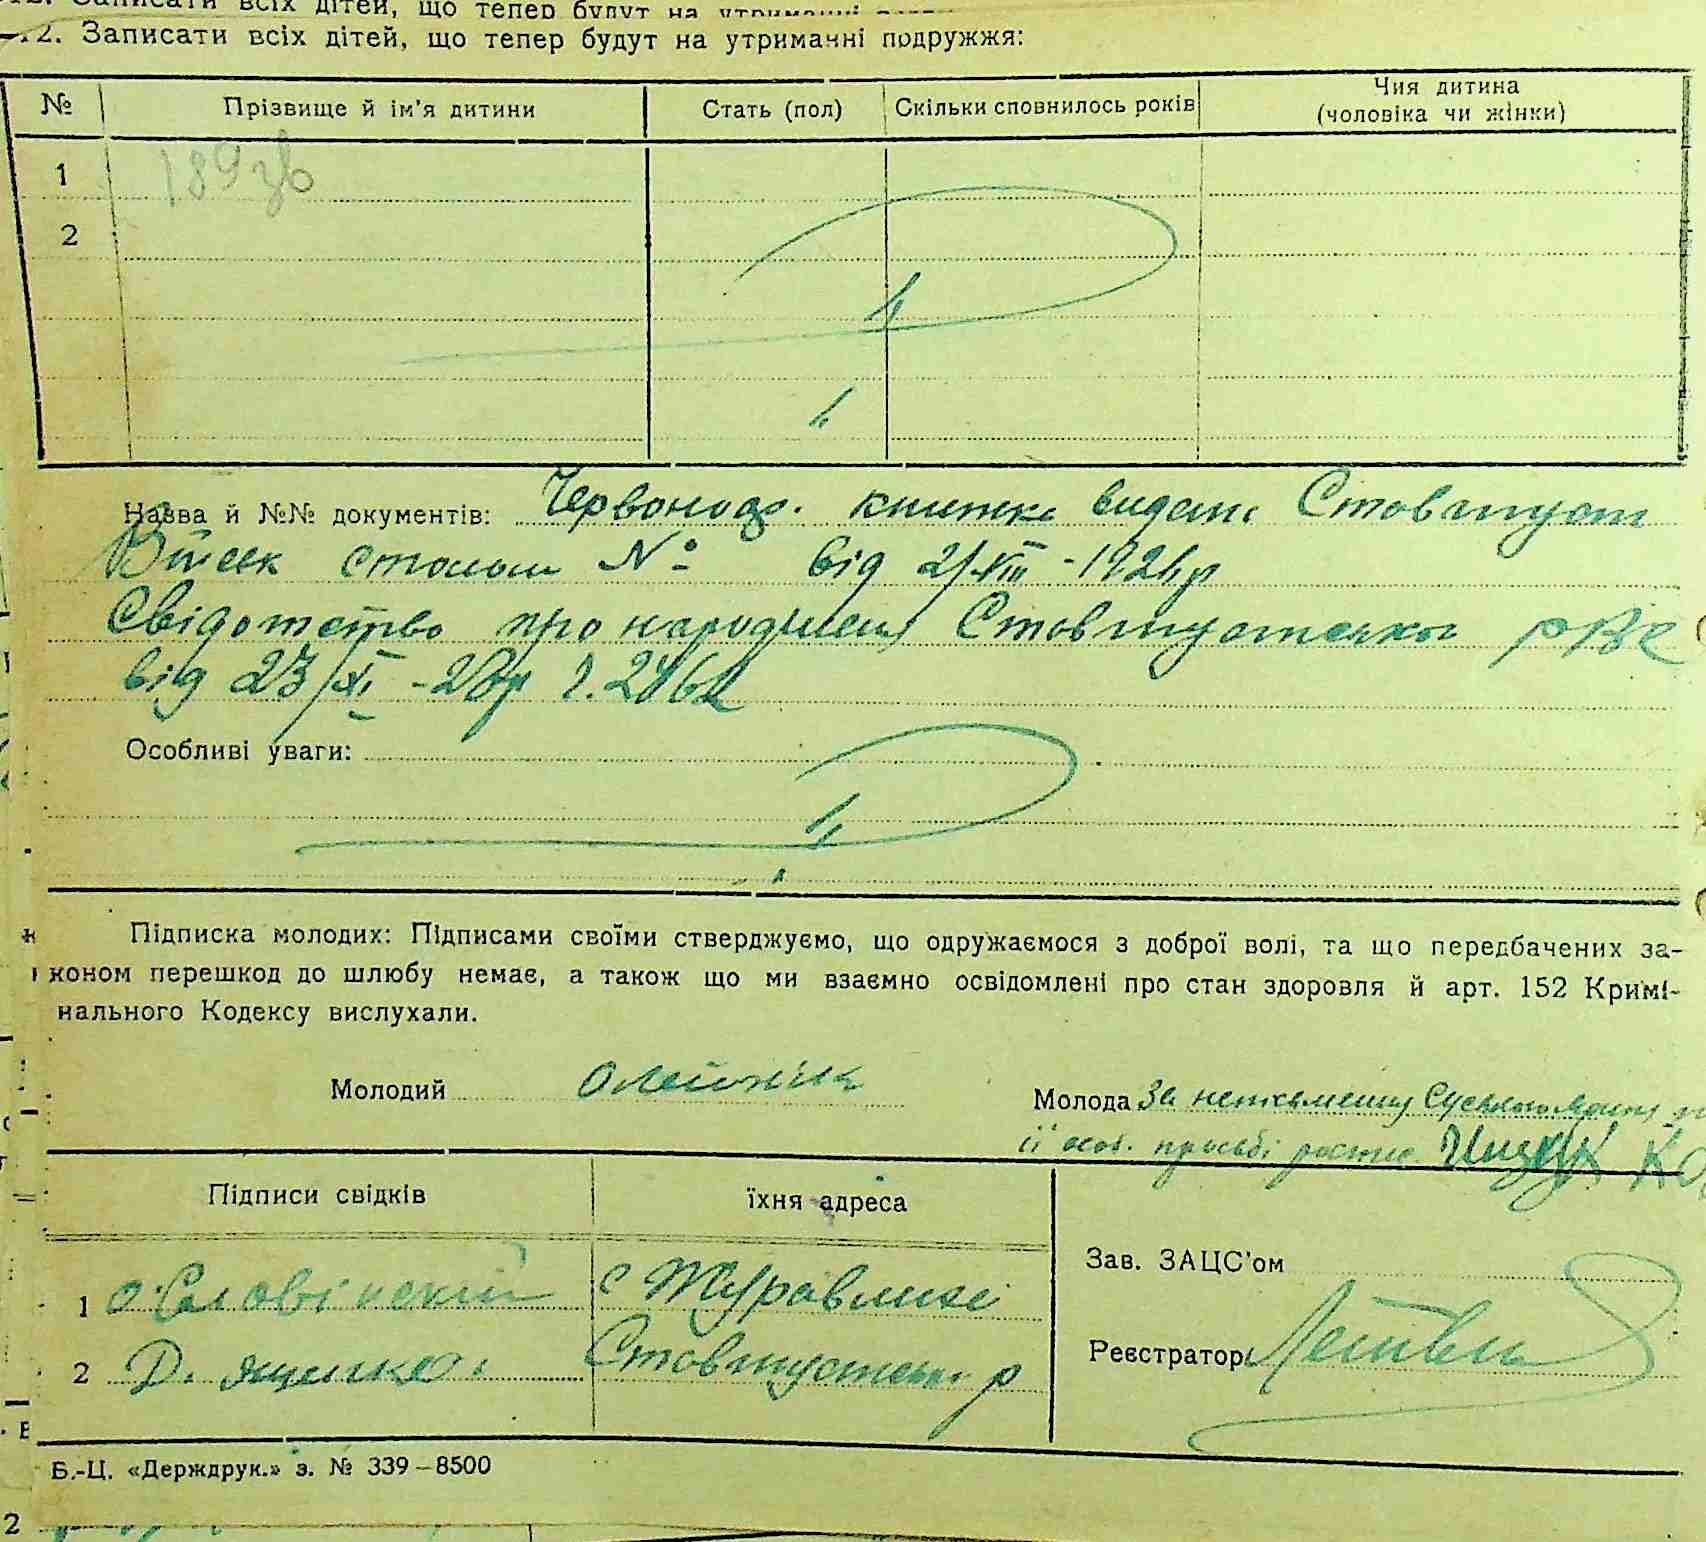 12. Записати всіх дітей, що тепер будут на
.2. Записати всіх дітей, що тепер будут на утриманні подружжя:
№ Прізвище й ім'я дитини Стать (пол) Скільки сповнилось років Чия дитина (чоловіка чи жінки)
1 189 зв
2
Назва й №№ документів: книжка видана
Війск столом № від 21/XII - 192
Свідотство про народження РВК
від 23/XI - 28р
Особливі уваги:
Підписка молодих: Підписами своїми стверджуємо, що одружаємося з доброї волі, та що передбачених за-
коном перешкод до шлюбу немає, а також що ми взаємно освідомлені про стан здоровля й арт. 152 Кримі-
нального Кодексу вислухали.
Молодий Олейник
Молода За неписьменну
її особ. просьбі
Підписи свідків їхня адреса
Зав. ЗАЦС'ом
1 с Журавлисі
2 Д. Яценко
Реєстратор
Б.-Ц. «Держдрук.» з. № 339–8500
2